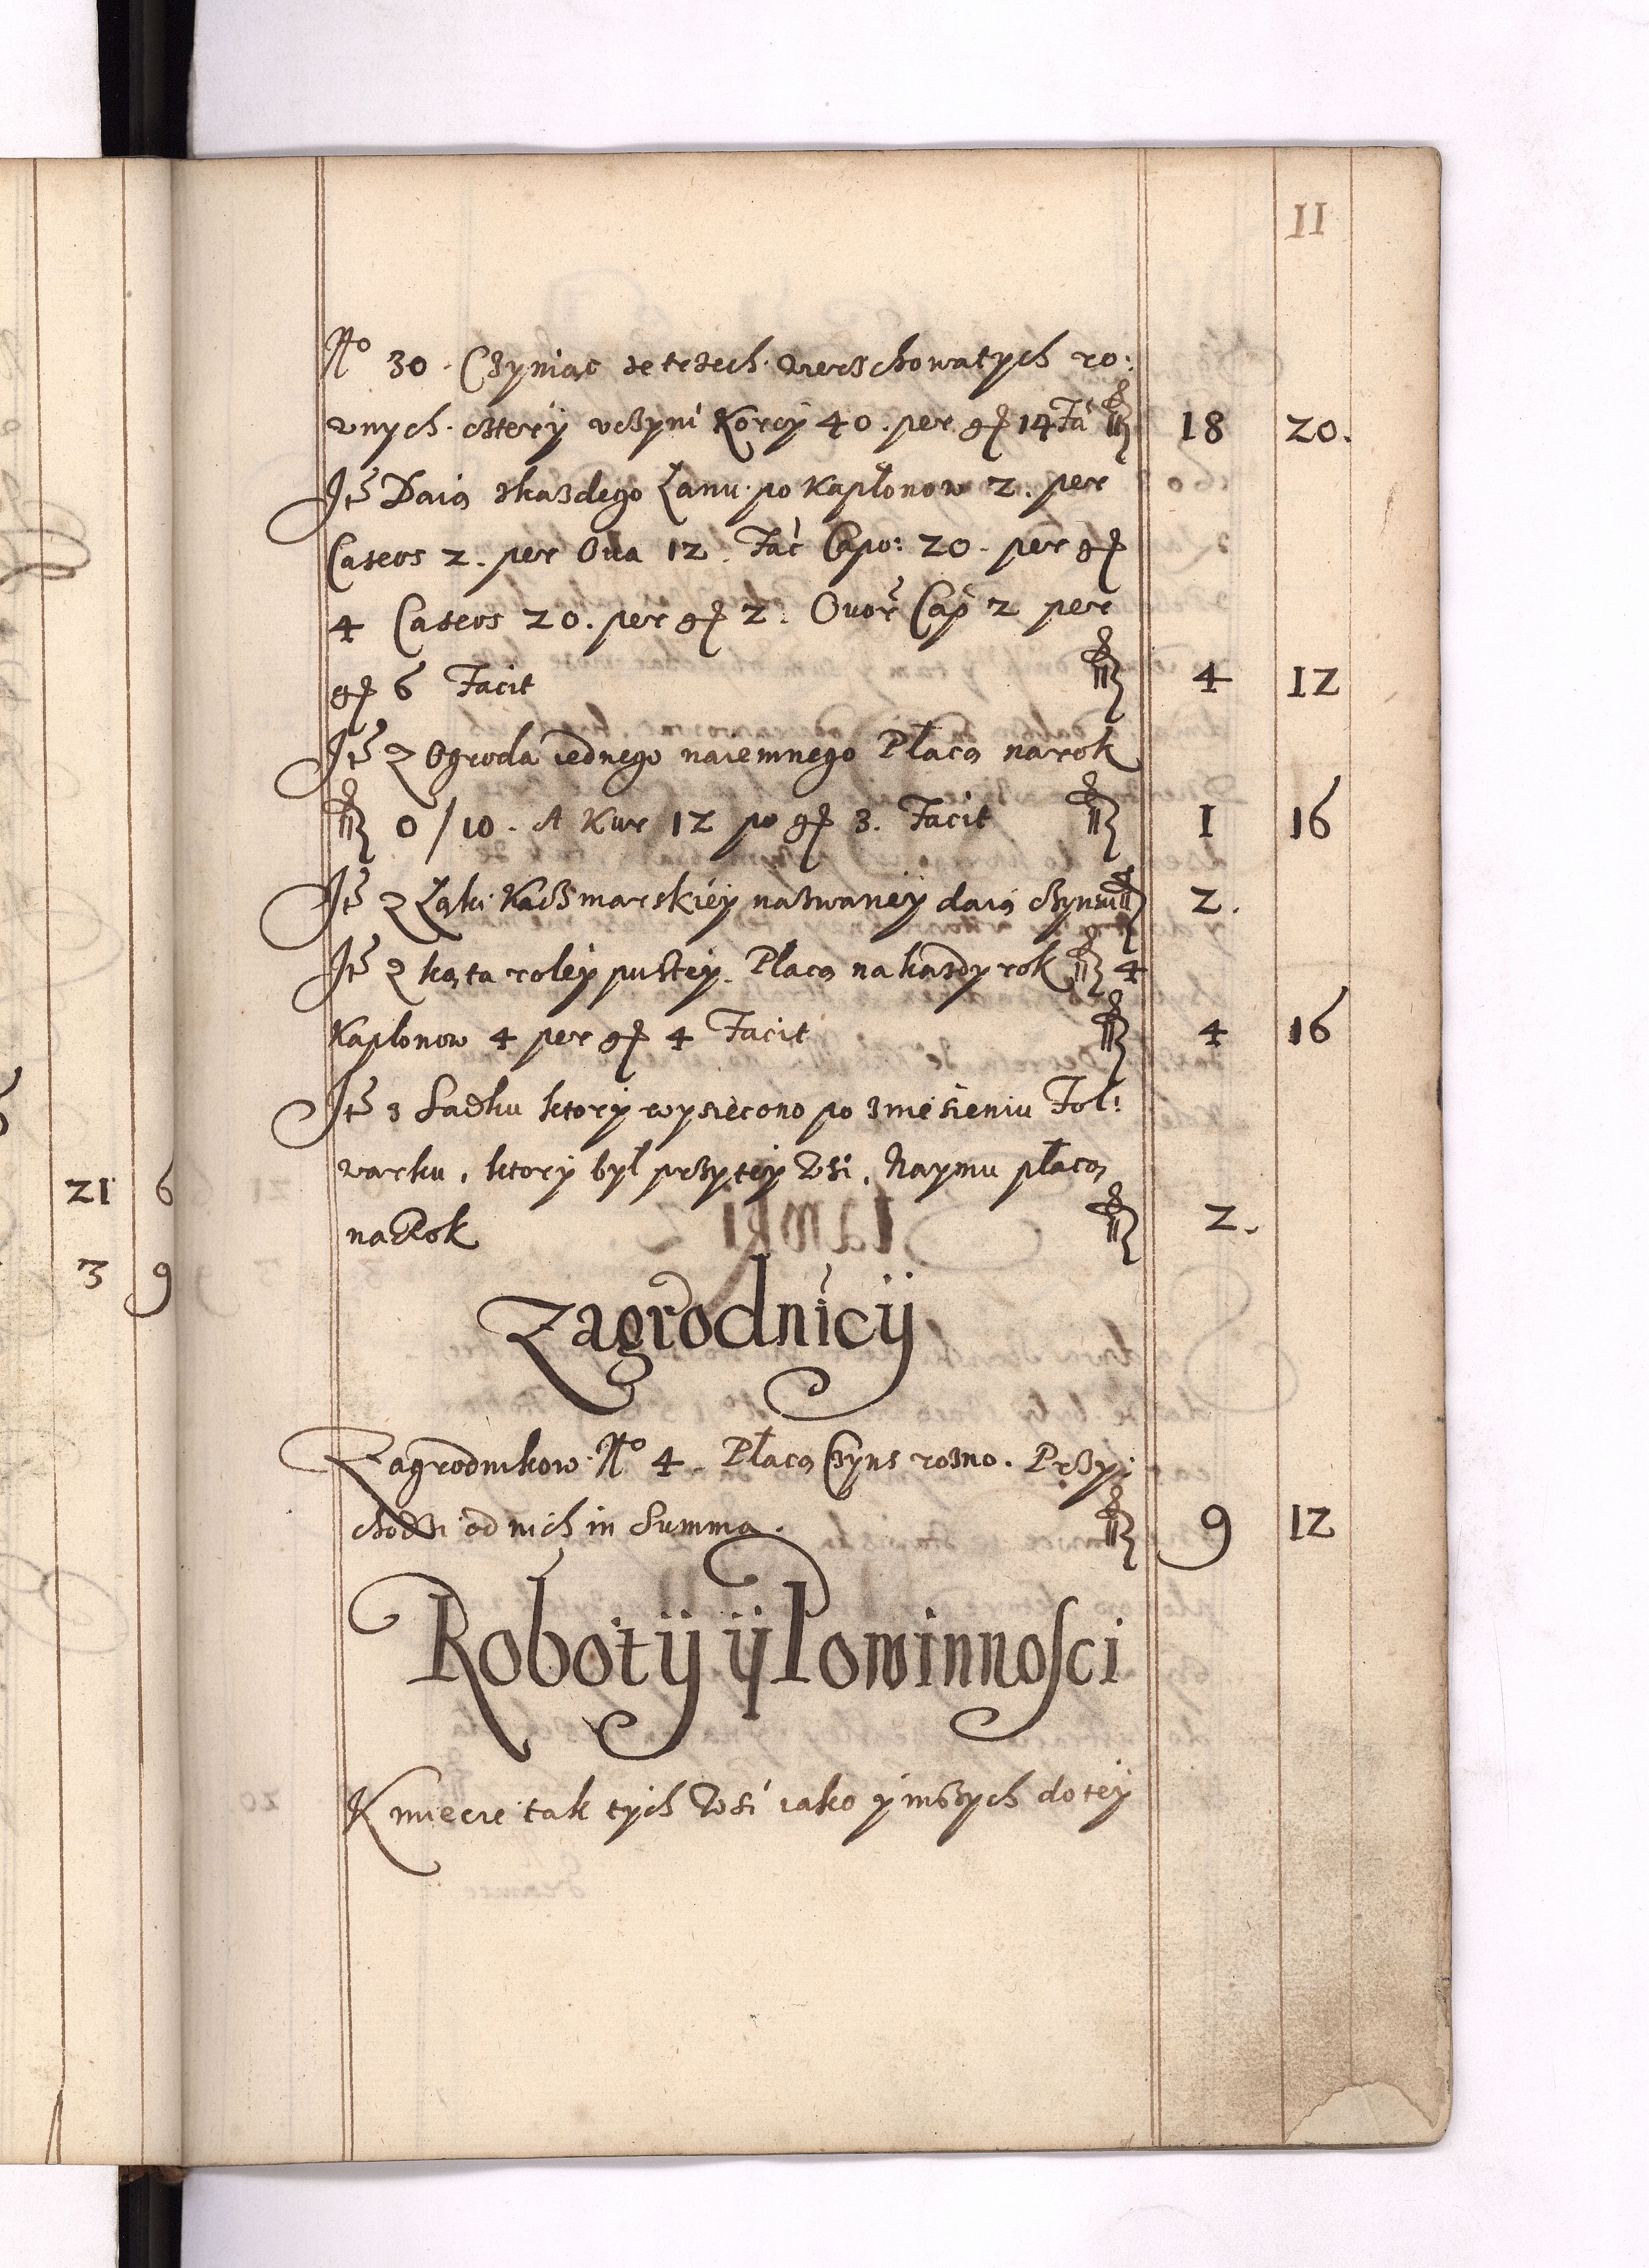 11
No 30. Czyniąc ze trzech wierzchowatych ro:
wnych cztery vczyni Korcy 40. per gr 14 Fa fl 18 20.
Itē Daią zkazdego Łanu po kapłonow 2. per
Caseos 2. per Oua 12. Fać Capo: 20. per gr
4 Caseos 20. per gr 2. Ouor Cap 2 per
gr 6 Facit fl 4 12
Itē z Ogroda iednego naiemnego Płacą narok
fl 0/10. A Kur 12 po gr 3. Facit fl 1 16
Itē z Łąki Kaczmarskiey nazwaney daią czynszu fl 2.
Itē z kąta roley pustey. Płacą na kazdy rok fl 4
Kaplonow 4 per gr 4 Facit fl 4 16
Itē z Sadku ktory wysiecono po zniesieniu Fol:
warku, ktory był przy tey Wsi, Naymu płacą
na Rok fl 2.
Zagrodnicy
Zagrodnikow No 4. Płacą Czyns rozno. Przy:
chodzi od nich in Summa. fl 9 12
Roboty y Powinnosci
Kmiecie tak tych Wsi iako y inszych do tey
21 6
3 9